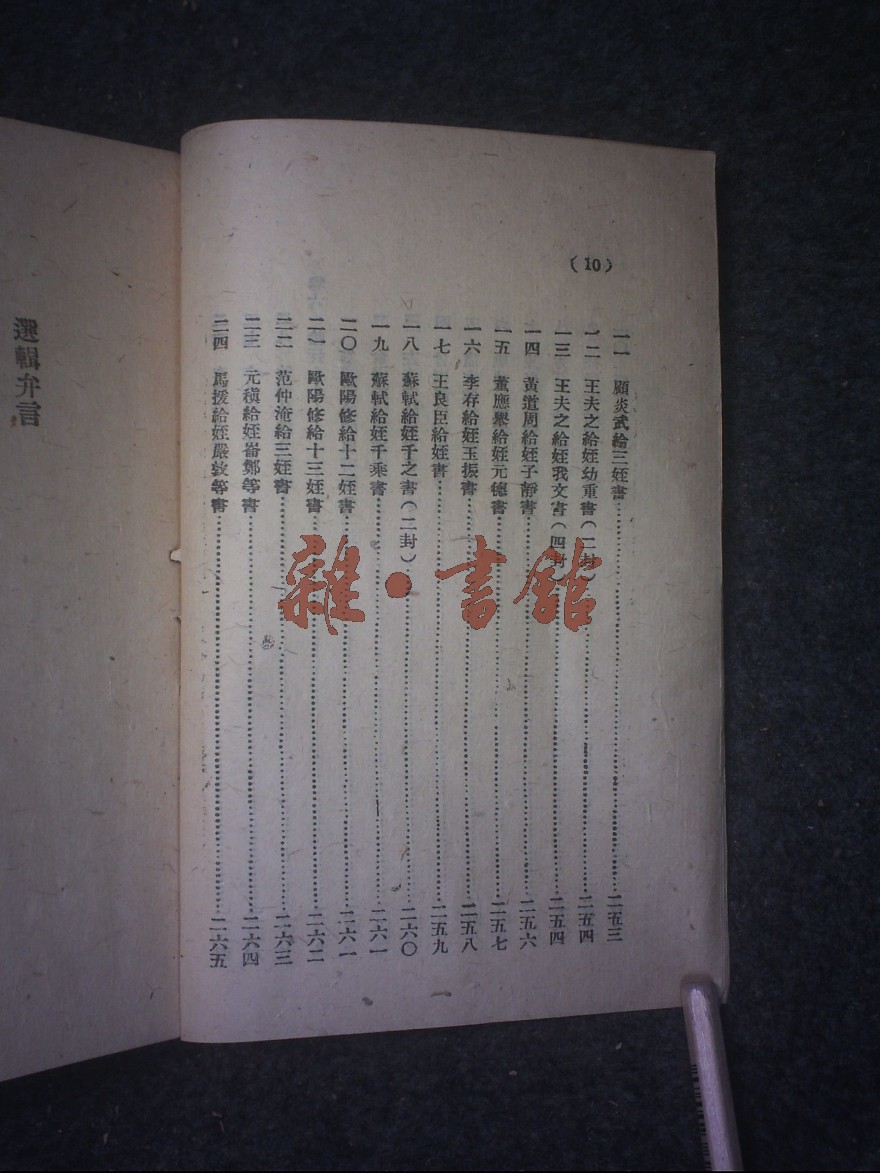 (10)
一一　顧炎武給三姪書…………二五三
一二　王夫之給姪幼重書(二封)…………二五四
一三　王夫之給姪我文書(四封)…………二五四
一四　黃道周給姪子靜書…………二五六
一五　董應舉給姪元德書…………二五七
一六　李存給姪玉振書…………二五八
一七　王良臣給姪書…………二五九
一八　蘇軾給姪千之書(二封)…………二六〇
一九　蘇軾給姪千乘書…………二六一
二〇　歐陽修給十二姪書…………二六一
二一　歐陽修給十三姪書…………二六二
二二　范仲淹給三姪書…………二六三
二三　元稹給姪崙鄭等書…………二六四
二四　馬援給姪嚴敦等書…………二六五
選輯弁言
雜·書館